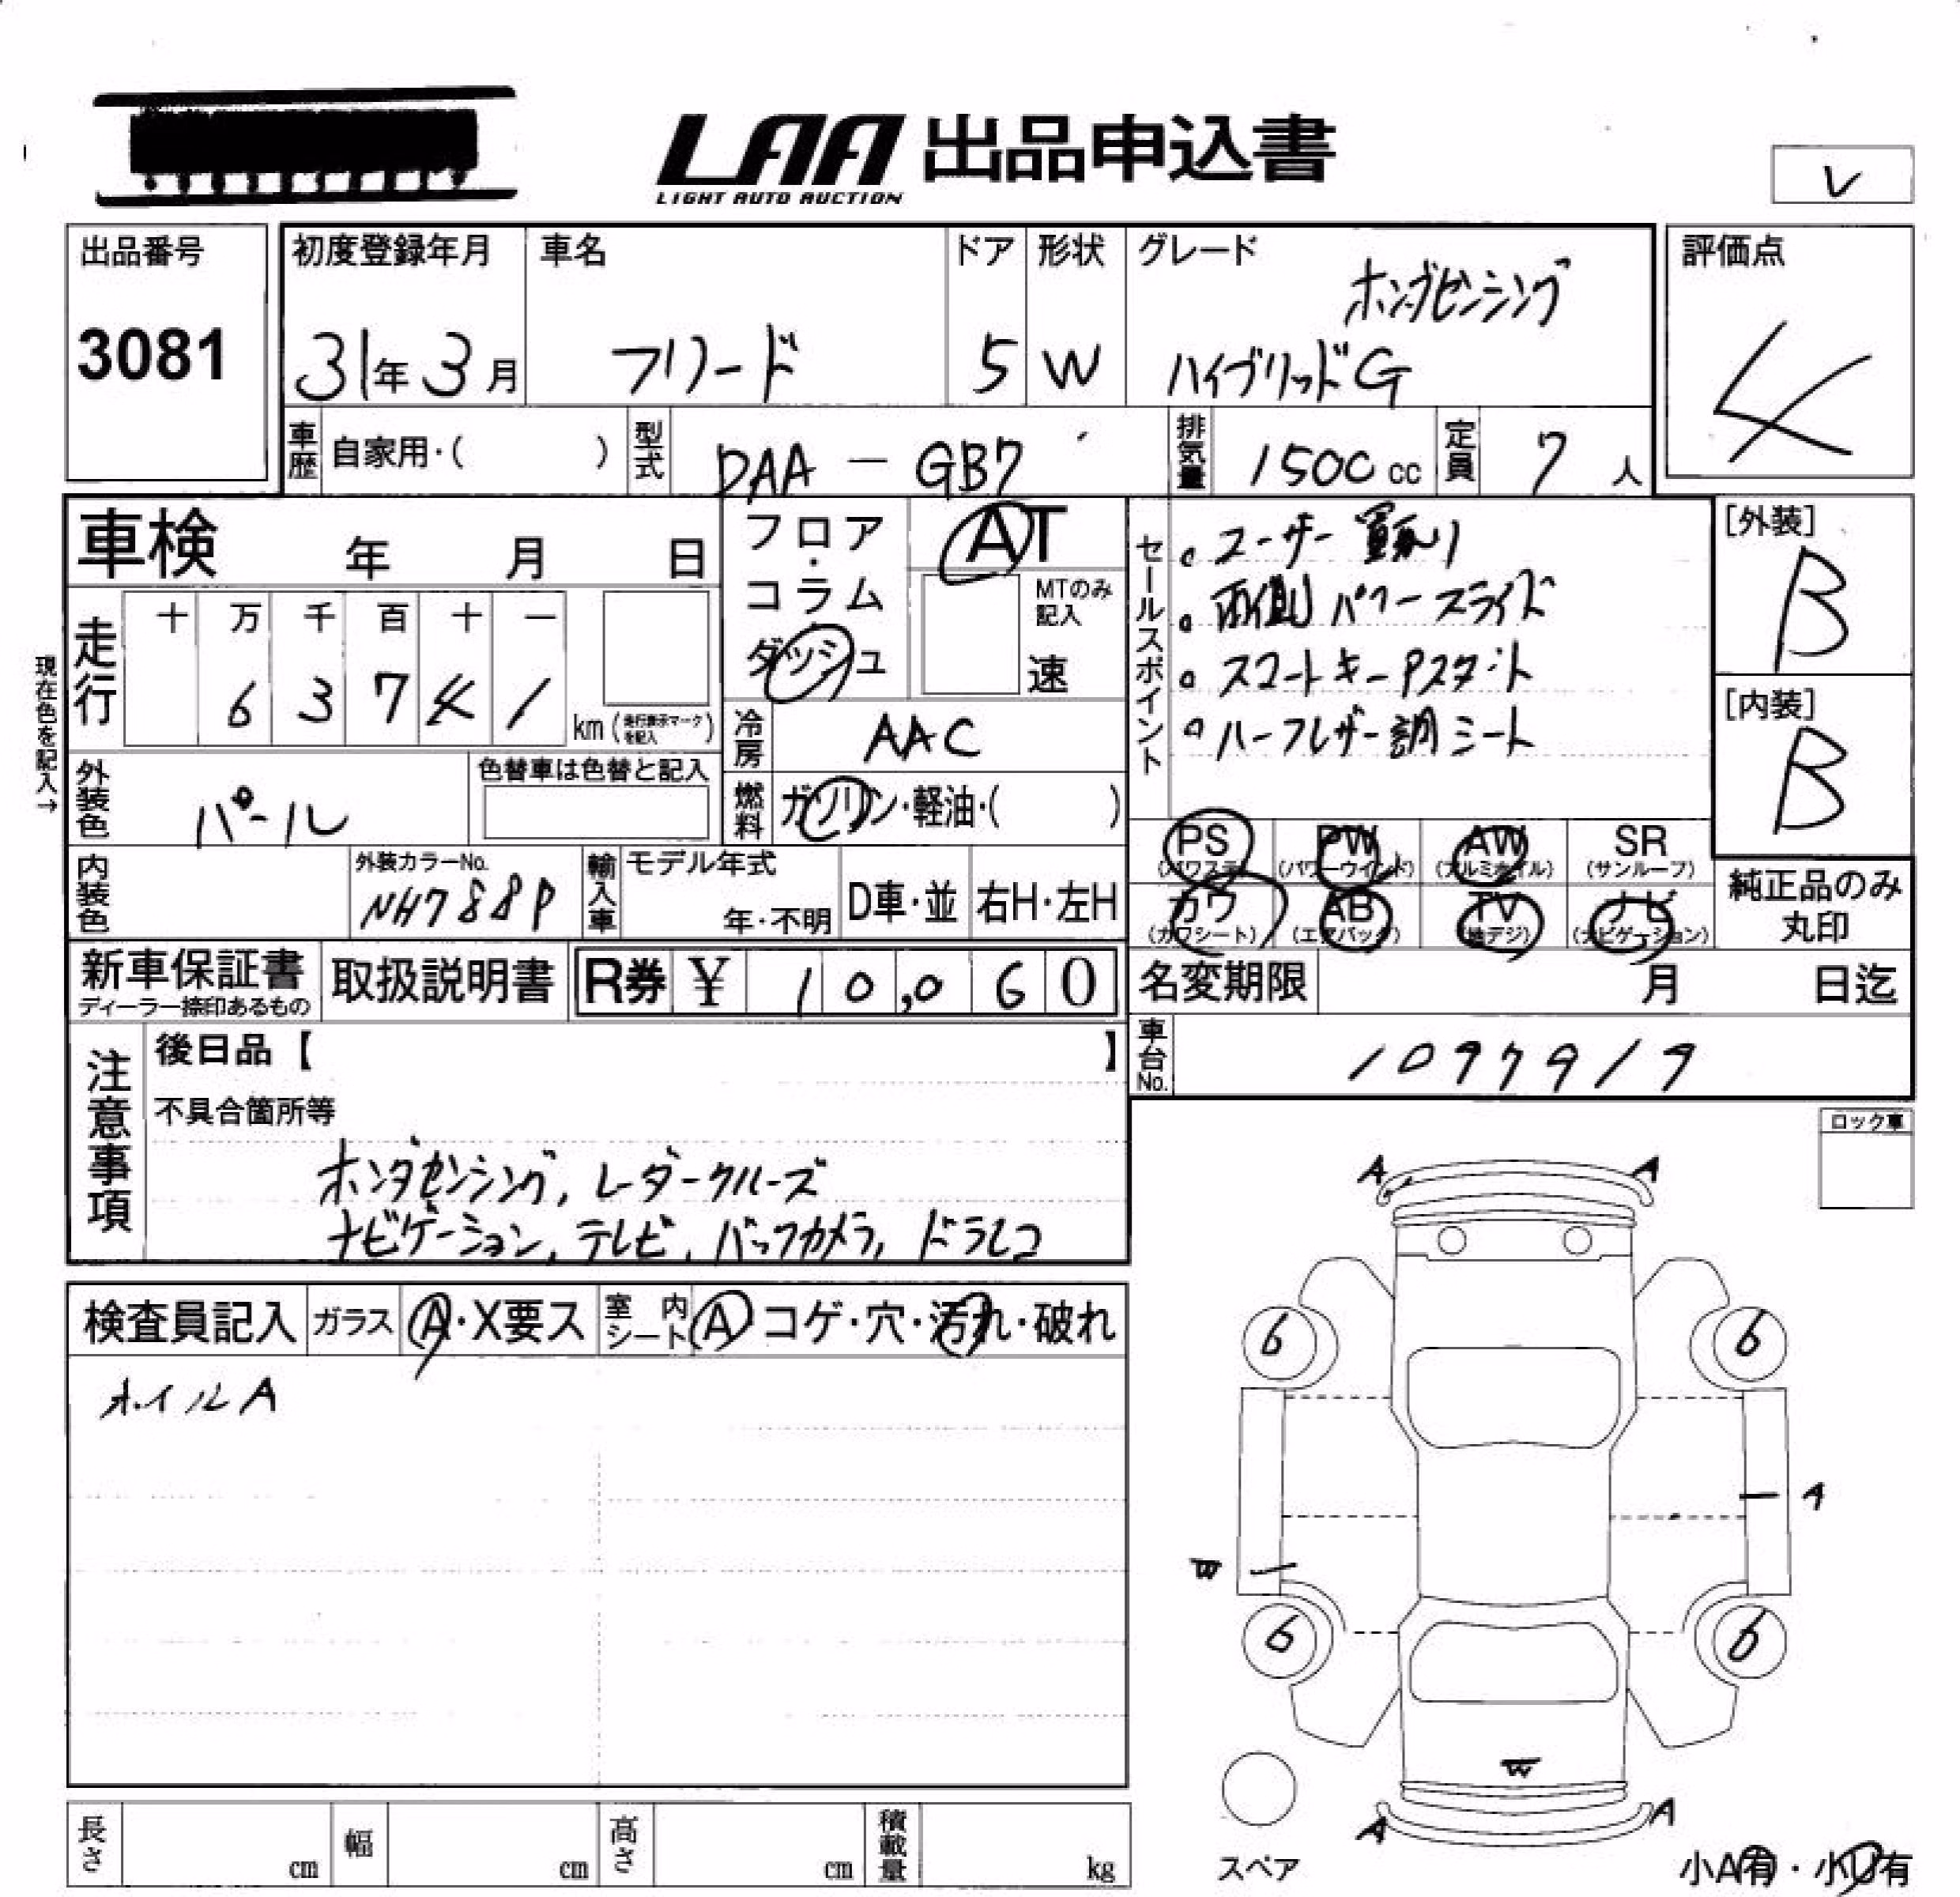 LAA 出品申込書
LIGHT AUTO AUCTION
レ
出品番号
3081
初度登録年月
31年 3月
車名
フリード
ドア
5
形状
W
グレード
ホンダセンシング
ハイブリッドG
評価点
4
車歴 自家用・( )
型式 DAA - GB7
排気量 1500 cc
定員 7 人
車検 年 月 日
フロア・コラム
ダッシュ
AT
MTのみ記入
速
セールスポイント
ユーザー買取り
両側パワースライド
スマートキーPスタート
ハーフレザー調シート
[外装]
B
[内装]
B
現在色を記入→
走行
十 万 千 百 十 一
6 3 7 4 1
km (走行表示マークを記入)
冷房 AAC
外装色 パール
色替車は色替と記入
燃料 ガソリン・軽油・( )
PS (パワステ)
PW (パワーウインド)
AW (アルミホイル)
SR (サンルーフ)
カワ (カワシート)
AB (エアバッグ)
TV (地デジ)
ナビ (ナビゲーション)
純正品のみ
丸印
内装色
外装カラーNo.
NH788P
輸入車
モデル年式
年・不明
D車・並
右H・左H
新車保証書
ディーラー捺印あるもの
取扱説明書
R券 ¥ 10,060
名変期限 月 日迄
車台No. 1097919
注意事項
後日品【 】
不具合箇所等
ホンダセンシング, レーダークルーズ
ナビゲーション, テレビ, バックカメラ, ドラレコ
ロック車
検査員記入 ガラス A・X要ス 室内シート A コゲ・穴・汚れ・破れ
ホイルA
A A
6 6
A
W
6 6
W
A A
スペア
小A有・小U有
長さ cm
幅 cm
高さ cm
積載量 kg